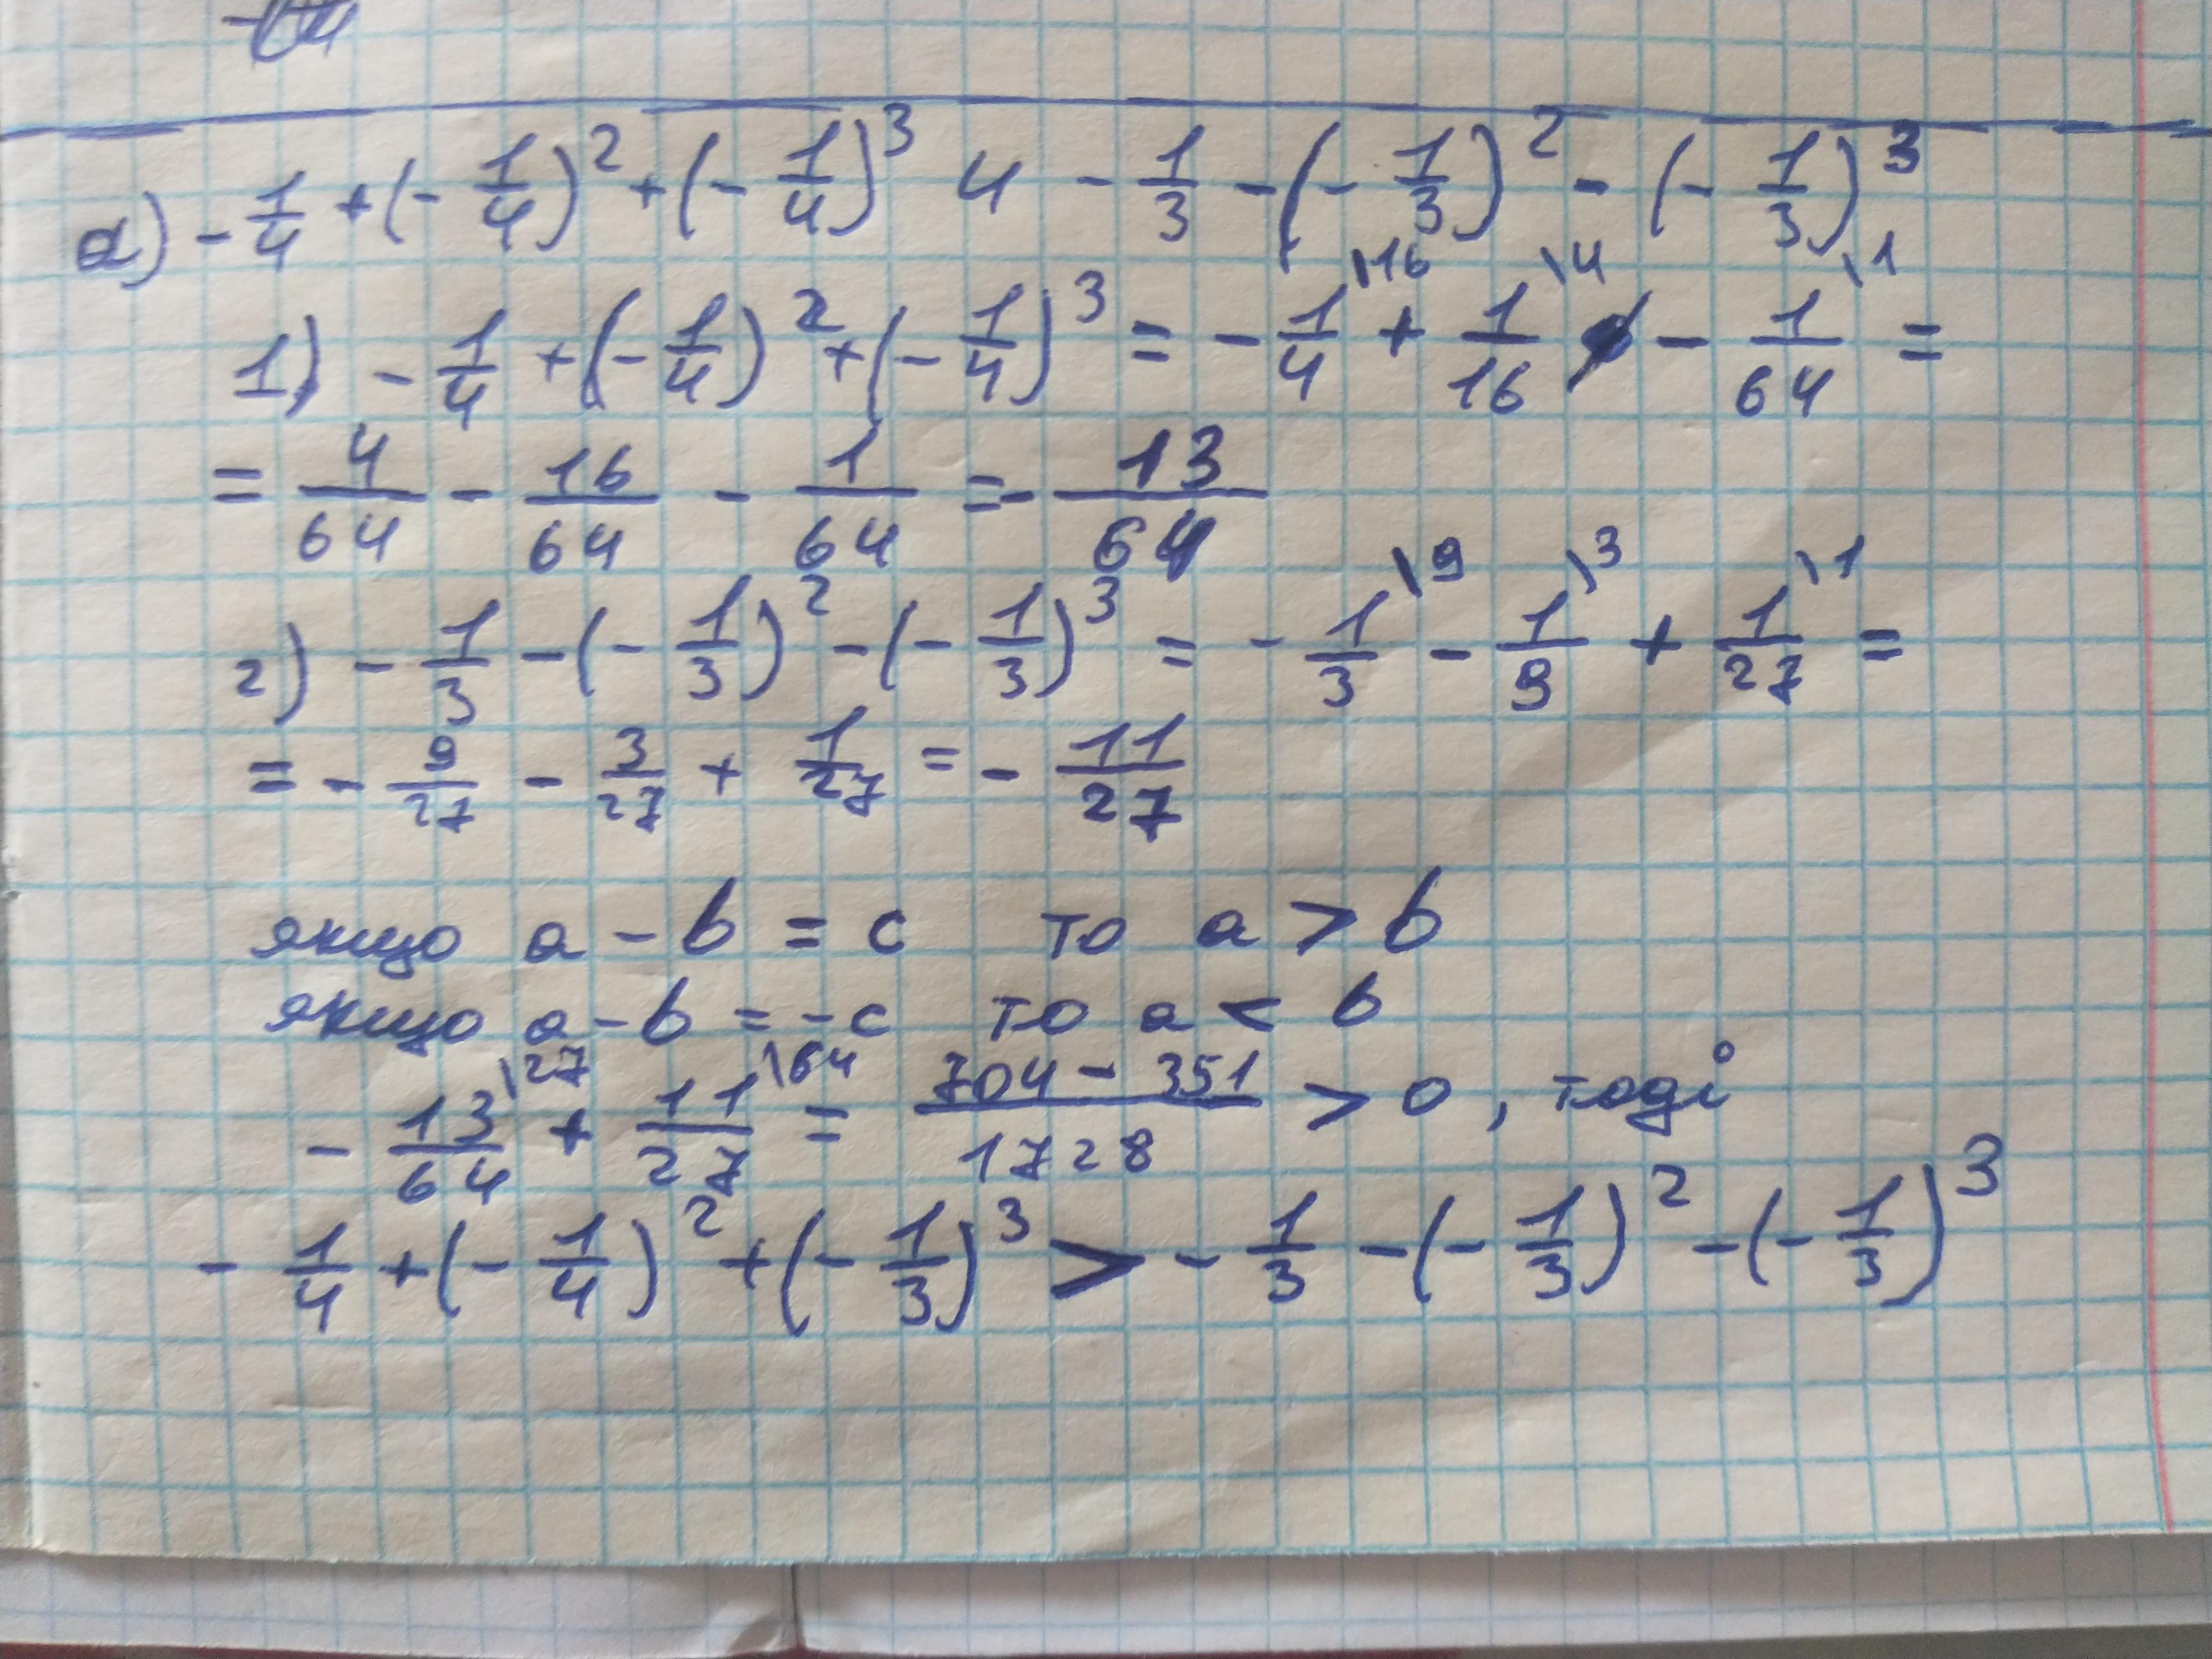 а) - 1/4 + (- 1/4)² + (- 1/4)³ и - 1/3 - (- 1/3)² - (- 1/3)³
1) - 1/4 + (- 1/4)² + (- 1/4)³ = - 1/4 \16 + 1/16 \4 - 1/64 \1 =
= 4/64 - 16/64 - 1/64 = - 13/64
2) - 1/3 - (- 1/3)² - (- 1/3)³ = - 1/3 \9 - 1/9 \3 + 1/27 \1 =
= - 9/27 - 3/27 + 1/27 = - 11/27
якщо a - b = c то a > b
якщо a - b = - c то a < b
- 13/64 \27 + 11/27 \64 = (704 - 351)/1728 > 0, тоді
- 1/4 + (- 1/4)² + (- 1/3)³ > - 1/3 - (- 1/3)² - (- 1/3)³